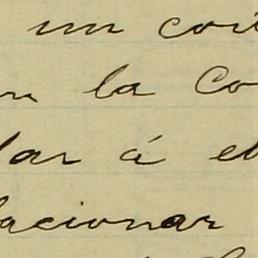 un con
en la Co
dar á el
lacionar